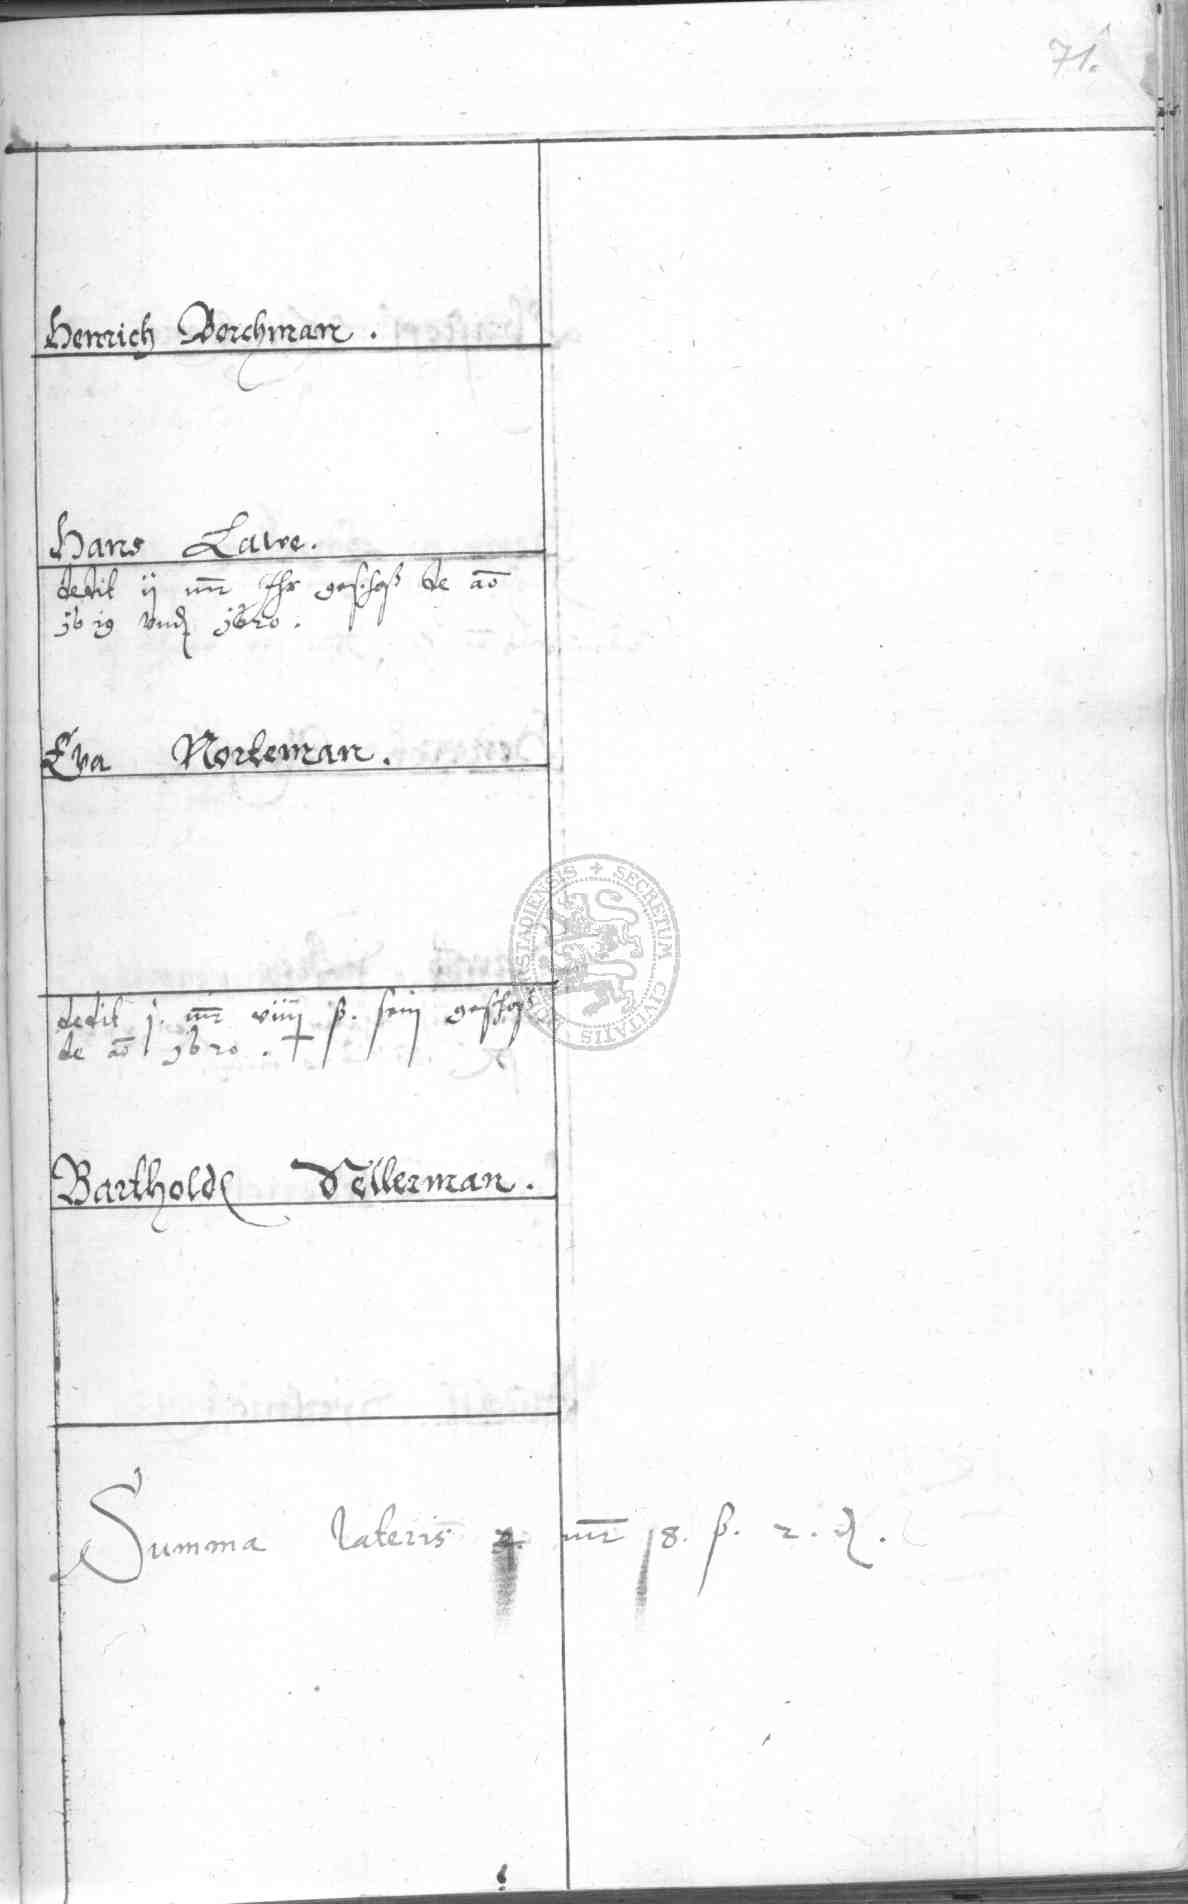 71.
Henrich Borchman.
Hans Lawe.
dedit ij mr Ihr geschoß de ao
1619 vnd 1620.
Eva Norteman.
dedit j. mr viiij ß. sein geschoß
de ao 1620.
Bartholdt Tellerman.
Summa lateris mr 18. ß. 2. d.
SECRETUM CIVITATIS STADIENSIS